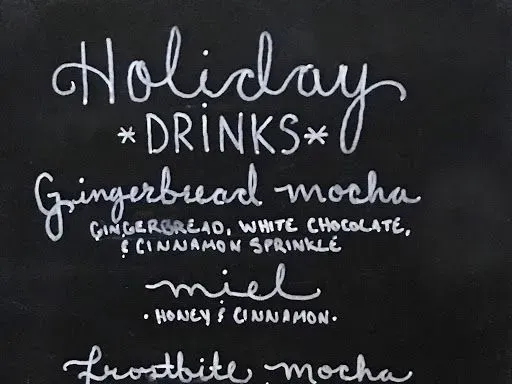 Holiday
*DRINKS*
Gingerbread mocha
GINGERBREAD, WHITE CHOCOLATE,
& CINNAMON SPRINKLE
miel
· HONEY & CINNAMON ·
frostbite mocha